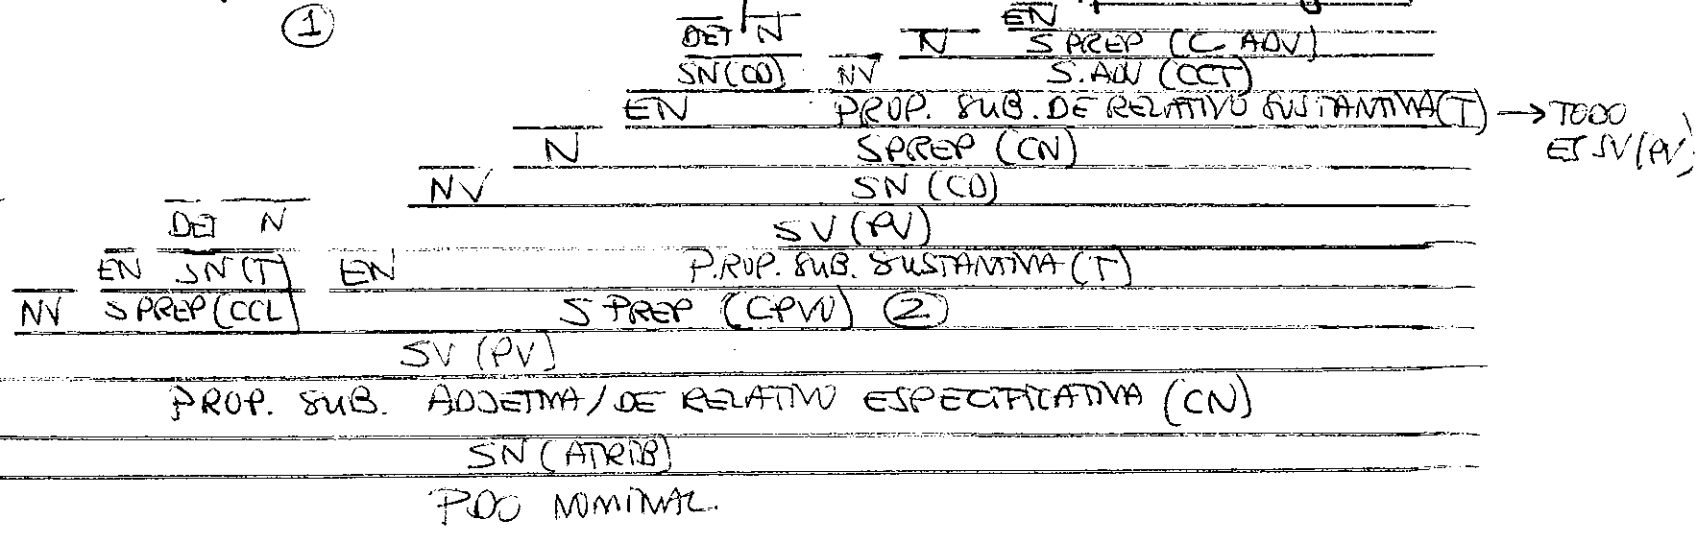 ①
EN
DET N N S PREP (C. ADV)
SN (CD) NV S. ADV (CCT)
EN PROP. SUB. DE RELATIVO SUSTANTIVA (T) → TODO
N SPREP (CN) ES SV (PV)
NV SN (CD)
DET N SV (PV)
EN SN (T) EN PROP. SUB. SUSTANTIVA (T)
NV SPREP (CCL) S PREP (CPVO) ②
SV (PV)
PROP. SUB. ADJETIVA / DE RELATIVO ESPECIFICATIVA (CN)
SN (ATRIB)
PDO NOMINAL.